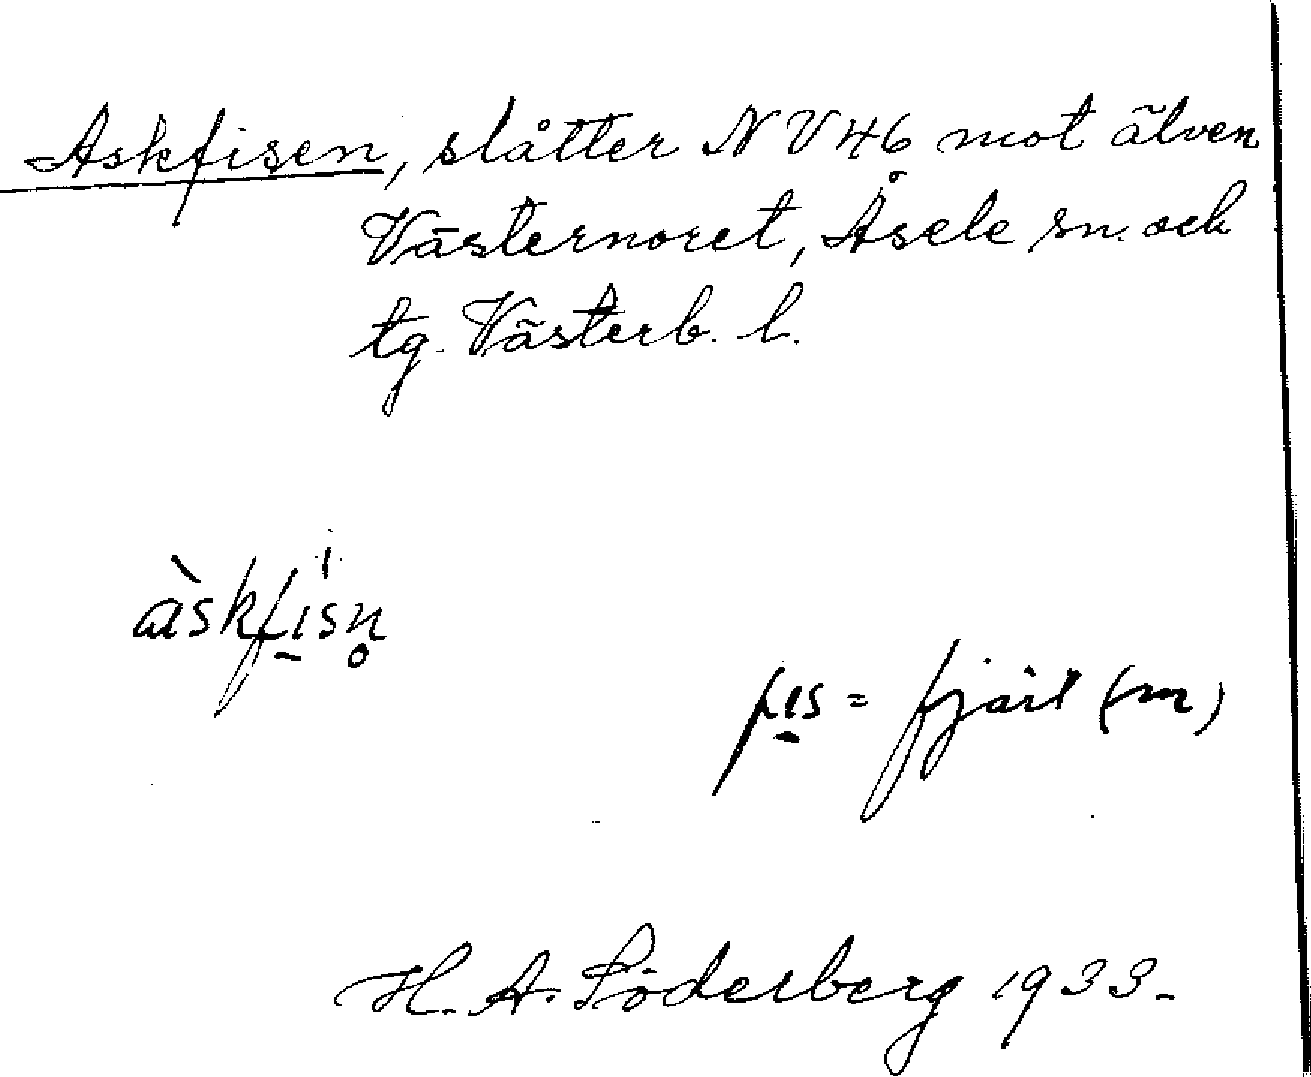 Askfisen, slåtter NV 46 mot älven
Västernoret, Åsele sn. och
tg. Västerb. l.
àskfı̱sn̥
fı̱s = fjäril (m)
H. A. Söderberg 1933.